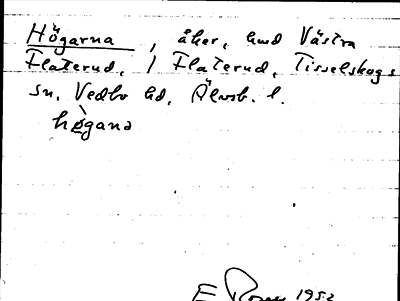 Högarna, åker, hmd Västra
Flaterud, / Flaterud, Tisselskogs
sn, Vedbo hd, Älvsb. l.
hø̀gana
E Rosen 1952